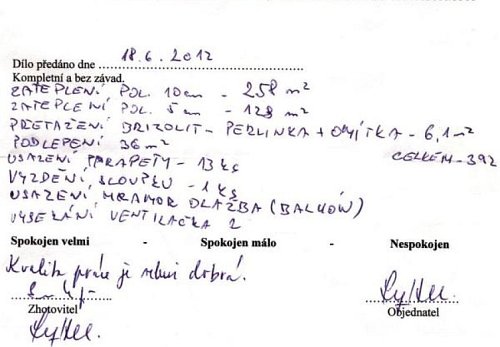 Dílo předáno dne 18.6.2012
Kompletní a bez závad.
ZATEPLENÍ POL. 10cm - 258 m²
ZATEPLENÍ POL. 5cm - 128 m²
PŘETAŽENÍ BRIZOLIT - PERLINKA + OMÍTKA - 6,1m²
PODLEPENÍ 36 m²
CELKEM - 392
USAZENÍ PARAPETY - 13 ks
VYZDĚNÍ SLOUPKU - 1 ks
USAZENÍ MRAMOR DLAŽBA (BALKÓN)
VYSEKÁNÍ VENTILAČKA 2
Spokojen velmi - Spokojen málo - Nespokojen
Kvalita práce je velmi dobrá.
Zhotovitel Objednatel